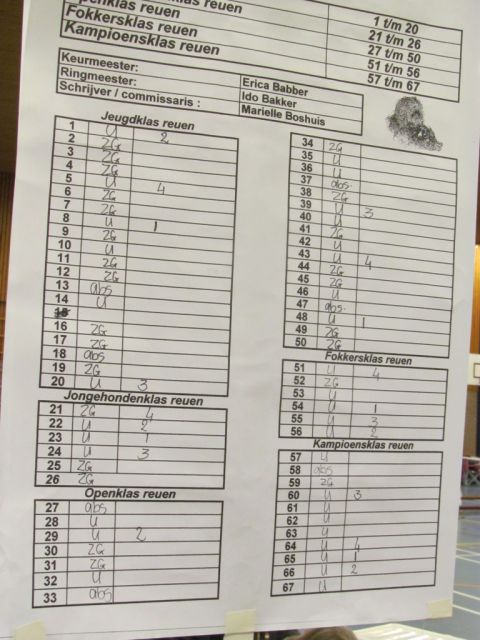 reuen 1 t/m 20
penklas reuen 21 t/m 26
Fokkersklas reuen 27 t/m 50
Kampioensklas reuen 51 t/m 56
57 t/m 67
Keurmeester: Erica Babber
Ringmeester: Ido Bakker
Schrijver / commissaris : Marielle Boshuis
Jeugdklas reuen
1 U 2
2 ZG
3 ZG
4 ZG
5 U 4
6 ZG
7 ZG
8 U 1
9 ZG
10 U
11 ZG
12 ZG
13 abs
14 U
15
16 ZG
17 ZG
18 abs
19 ZG
20 U 3
Jongehondenklas reuen
21 ZG 4
22 U 2
23 U 1
24 U 3
25 ZG
26 ZG
Openklas reuen
27 abs
28 U
29 U 2
30 ZG
31 ZG
32 U
33 abs
34 ZG
35 U
36 U
37 abs.
38 ZG
39 U 3
40 U
41 ZG
42 U
43 U 4
44 ZG
45 ZG
46 U
47 abs.
48 U 1
49 ZG
50 ZG
Fokkersklas reuen
51 U 4
52 ZG
53 U
54 U 1
55 U 3
56 U 2
Kampioensklas reuen
57 U
58 abs
59 ZG
60 U 3
61 U
62 U
63 U
64 U 4
65 U 1
66 U 2
67 U